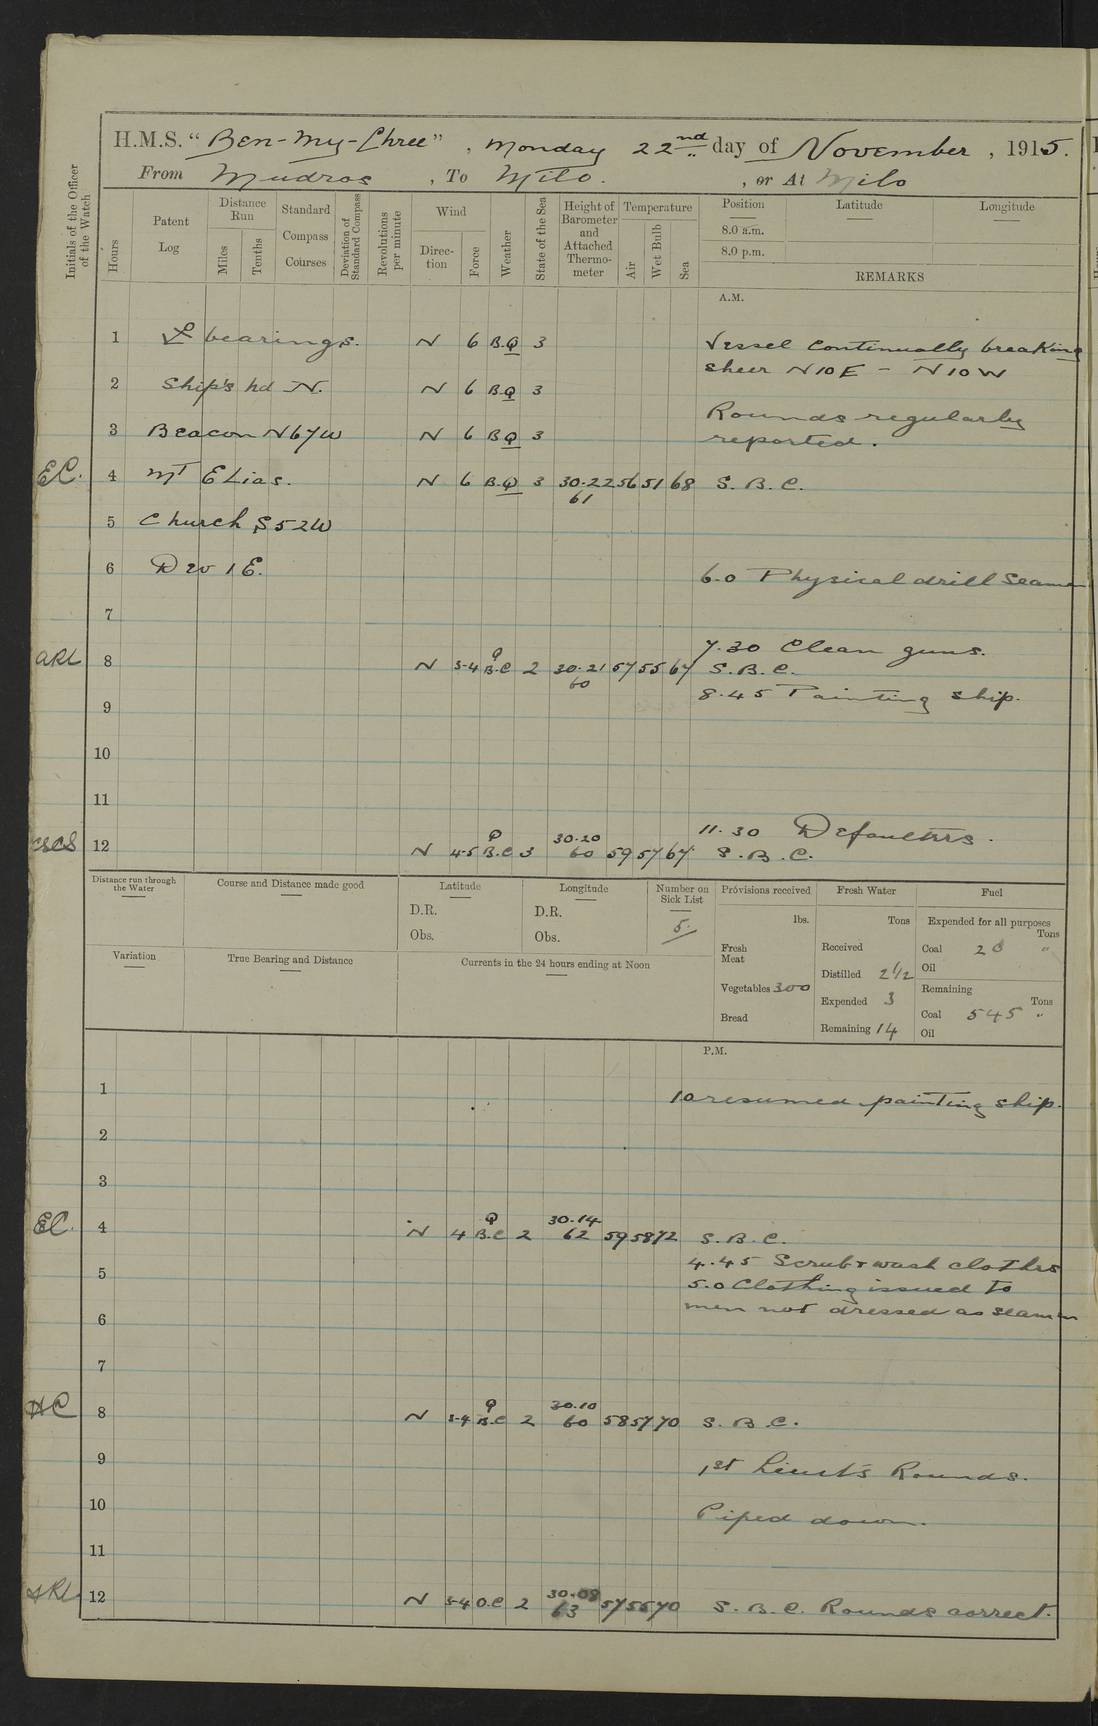 H.M.S. "Ben-my-Chree", Monday 22nd day of November, 1915.
From Mudros, To Milo., or At Milo
Initials of the Officer of the Watch
Hours
Patent Log
Distance Run
Miles
Tenths
Standard Compass Courses
Deviation of Standard Compass
Revolutions per minute
Wind
Direction
Force
Weather
State of the Sea
Height of Barometer and Attached Thermometer
Temperature
Air
Wet Bulb
Sea
Position Latitude Longitude
8.0 a.m.
8.0 p.m.
REMARKS
A.M.
1 bearings. N 6 B.Q 3 Vessel continually breaking
sheer N10E - N10W
2 Ship's hd N. N 6 B.Q 3
Rounds regularly
3 Beacon N67W N 6 B.Q 3 reported.
EC. 4 Mt Elias. N 6 B.Q 3 30.22 56 51 68 S.B.C.
61
5 Church S52W
6 Dev 1E. 6.0 Physical drill Seamen
7
7.30 Clean guns.
ARL 8 N 3-4 B.C Q 2 30.21 57 55 67 S.B.C.
60
8.45 Painting ship.
9
10
11
11.30 Defaulters.
30.20
12 N 4-5 B.C Q 3 60 59 57 67 S.B.C.
Distance run through the Water
Course and Distance made good
Latitude
D.R.
Obs.
Longitude
D.R.
Obs.
Number on Sick List
5.
Provisions received
lbs.
Fresh Meat
Vegetables 300
Bread
Fresh Water
Tons
Received
Distilled 2 1/2
Expended 3
Remaining 14
Fuel
Expended for all purposes
Tons
Coal 20 "
Oil
Remaining
Tons
Coal 545 "
Oil
Variation
True Bearing and Distance
Currents in the 24 hours ending at Noon
P.M.
1 1.0 resumed painting ship.
2
3
30.14
EC. 4 N 4 B.C Q 2 62 59 58 72 S.B.C.
4.45 Scrub & wash clothes
5 5.0 Clothing issued to
men not dressed as seamen
6
7
30.10
HC 8 N 3-4 B.C Q 2 60 58 57 70 S.B.C.
9 1st Lieut's Rounds.
10 Piped down.
11
30.08
ARL 12 N 3-4 O.C 2 63 57 55 70 S.B.C. Rounds correct.